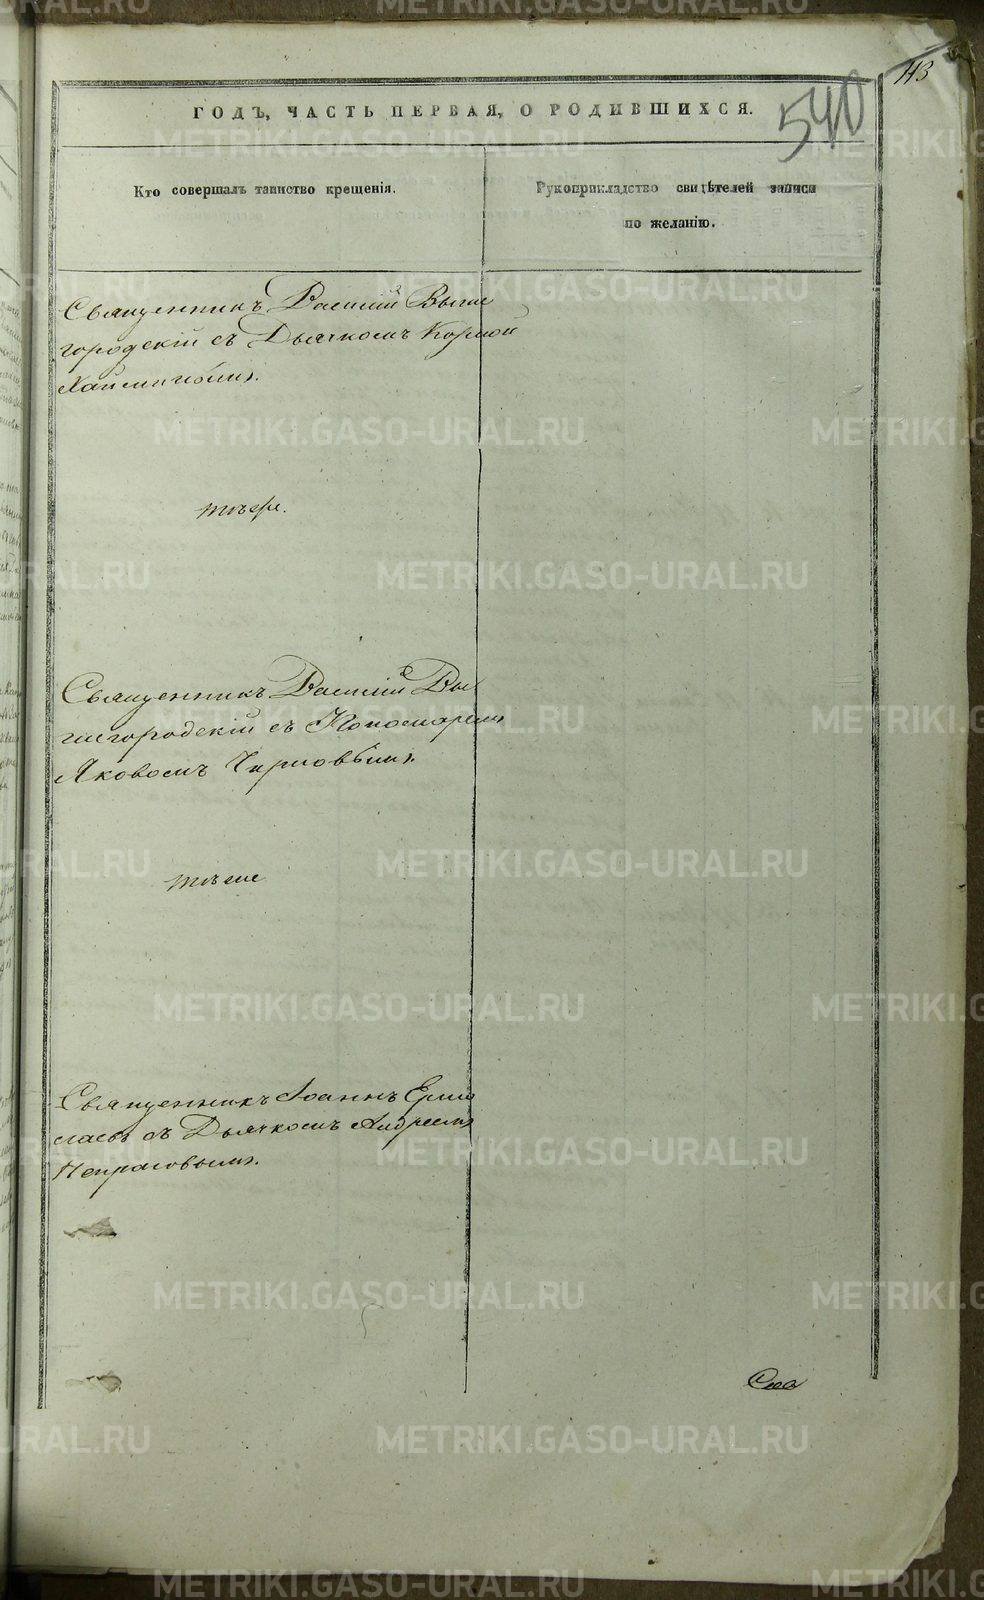 113
540
ГОДЪ, ЧАСТЬ ПЕРВАЯ, О РОДИВШИХСЯ.
Кто совершалъ таинство крещенія.
Рукоприкладство свидѣтелей записи
по желанію.
Священникъ Василій Выше
городскій съ Дьячкомъ
тѣже.
Священникъ Василій Вы
шегородскій съ Пономаремъ
Яковомъ Черновымъ.
тѣже
Священникъ Іоаннъ Ерми
съ Дьячкомъ Андреемъ
Некрасовымъ.
METRIKI.GASO-URAL.RU